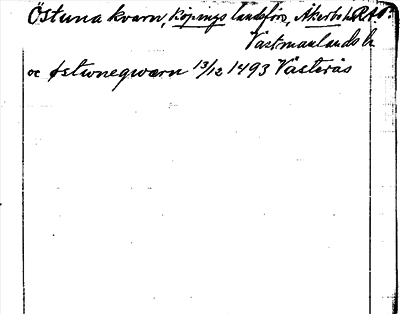 Östuna kvarn, Köpings landsförs, Åkerbo h. RAP.
Västmanlands l.
oe Østwneqwærn 13/12 1493 Västerås